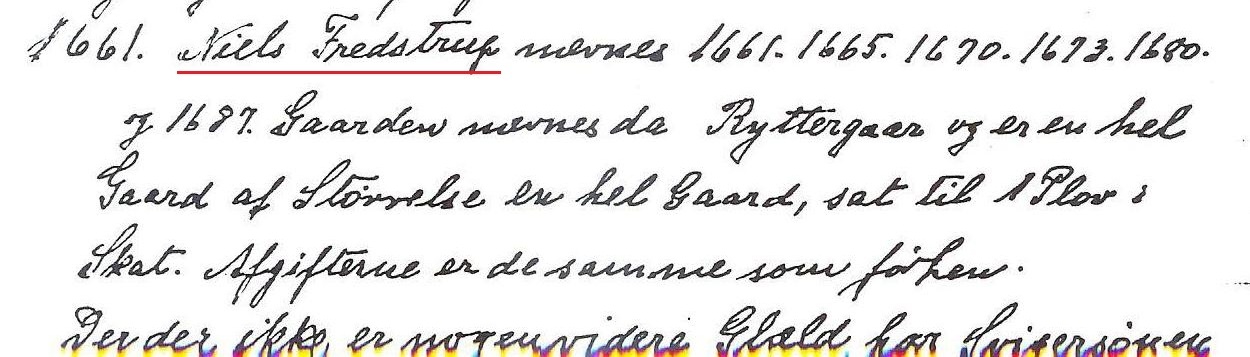 1661. Niels Fredstrup nævnes 1661. 1665. 1670. 1673. 1680.
og 1687. Gaarden nævnes da Ryttergaar og er en hel
Gaard af Størrelse en hel Gaard, sat til 1 Plov i
Skat. Afgifterne er de samme som førhen.
Der der ikke er nogen videre Gæld har Svigersønnen